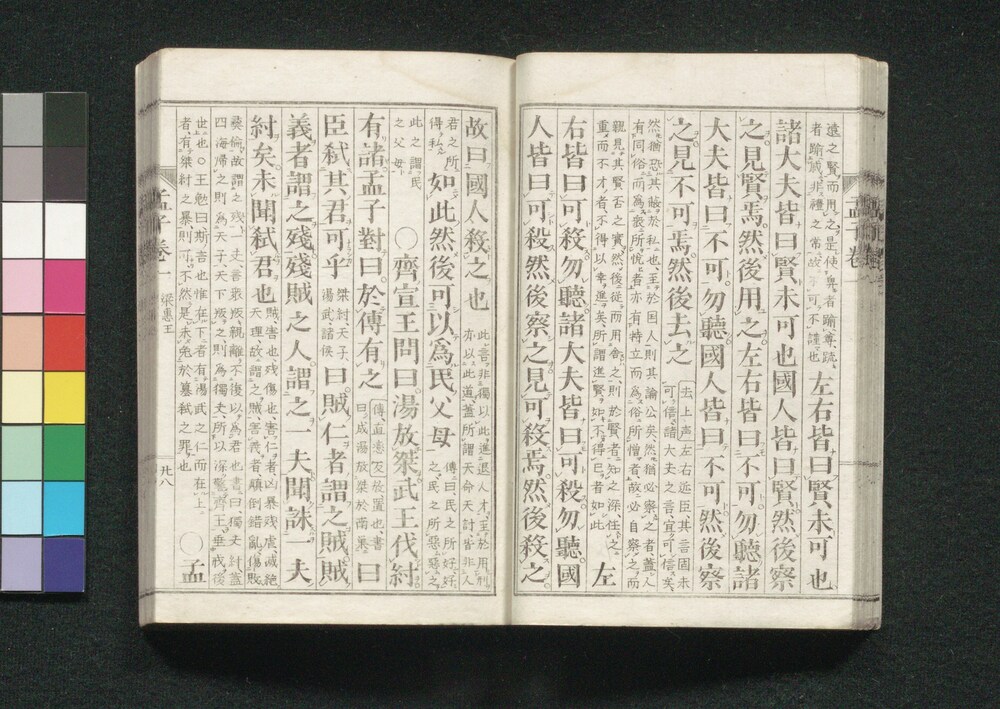 遠之賢而用之是使卑者踰尊疏
者踰戚非禮之常故不可不謹也
左右皆曰賢未可也
諸大夫皆曰賢未可也國人皆曰賢然後察
之見賢焉然後用之左右皆曰不可勿聽諸
大夫皆曰不可勿聽國人皆曰不可然後察
之見不可焉然後去之
去上声左右近臣其言固未
可信諸大夫之言宜可信矣
然猶恐其蔽於私也至於国人則其論公矣然猶必察之者蓋人
有同俗而為衆所悦者亦有特立而為俗所憎者故必自察之而
親見其賢否之實然後從而用舎之則於賢者知之深任之
重而不才者不得以幸進矣所謂進賢如不得已者如此
左
右皆曰可殺勿聽諸大夫皆曰可殺勿聽國
人皆曰可殺然後察之見可殺焉然後殺之
故曰國人殺之也
此言非獨以此進退人才至於用刑
亦以此道蓋所謂天命天討皆非人
君之所
得私
如此然後可以為民父母
傳曰民之所好好
之民之所惡惡之
此之謂民
之父母
○齊宣王問曰湯放桀武王伐紂
有諸孟子對曰於傳有之
傳直恋反放置也書
曰成湯放桀於南巢
曰
臣弑其君可乎
桀紂天子
湯武諸侯
曰賊仁者謂之賊賊
義者謂之殘殘賊之人謂之一夫聞誅一夫
紂矣未聞弑君也
賊害也残傷也害仁者凶暴残虐滅絶
天理故謂之賊害義者顛倒錯乱傷敗
彝倫故謂之残一夫言衆叛親離不復以為君也書曰獨夫紂蓋
四海帰之則為天子天下叛之則為獨夫所以深警齊王垂戒後
世也○王勉曰斯言也惟在下者有湯武之仁而在上
者有桀紂之暴則可不然是未免於簒弑之罪也
○孟
孟子卷一
梁惠王
廿八